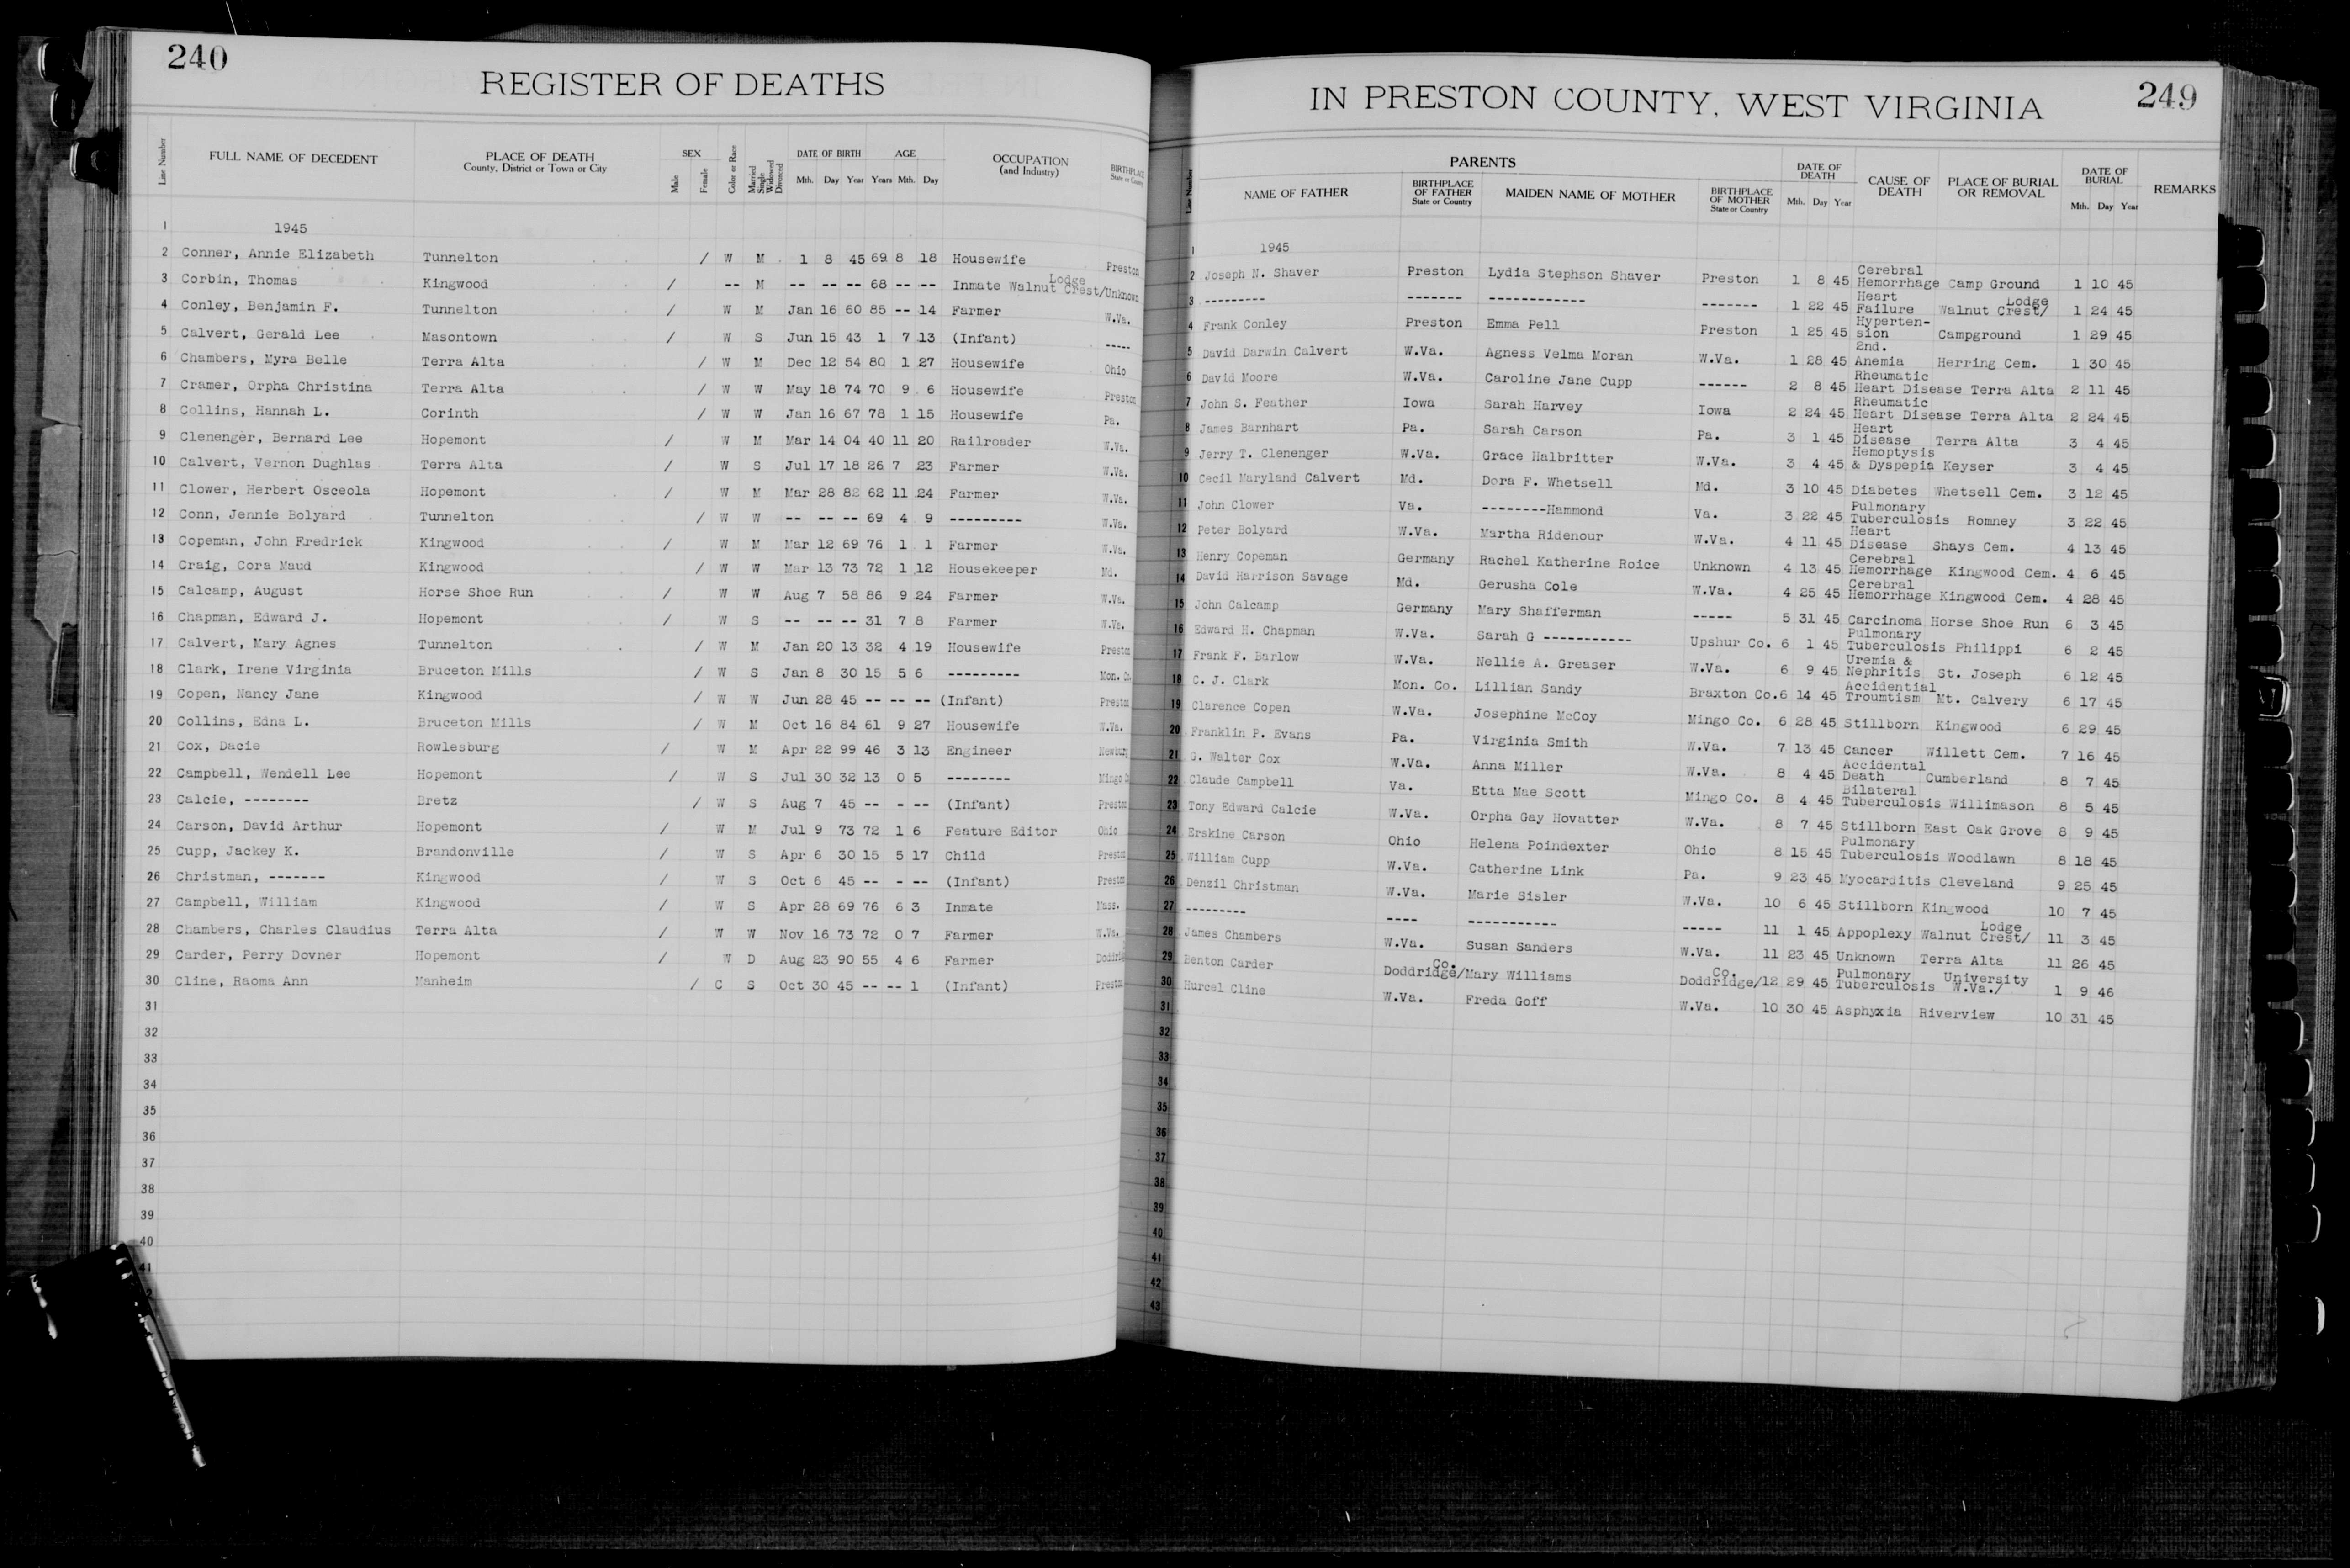 240
REGISTER OF DEATHS
Line Number FULL NAME OF DECEDENT PLACE OF DEATH County, District or Town or City SEX Male Female Color or Race Married Single Widowed Divorced DATE OF BIRTH Mth. Day Year AGE Years Mth. Day OCCUPATION (and Industry) BIRTHPLACE State or Country
1 1945
2 Conner, Annie Elizabeth Tunnelton / W M 1 8 45 69 8 18 Housewife Preston
3 Corbin, Thomas Kingwood / -- M -- -- -- 68 -- -- Inmate Walnut Crest/Lodge Unknown
4 Conley, Benjamin F. Tunnelton / W M Jan 16 60 85 -- 14 Farmer W.Va.
5 Calvert, Gerald Lee Masontown / W S Jun 15 43 1 7 13 (Infant) -----
6 Chambers, Myra Belle Terra Alta / W M Dec 12 54 80 1 27 Housewife Ohio
7 Cramer, Orpha Christina Terra Alta / W W May 18 74 70 9 6 Housewife Preston
8 Collins, Hannah L. Corinth / W W Jan 16 67 78 1 15 Housewife Pa.
9 Clenenger, Bernard Lee Hopemont / W M Mar 14 04 40 11 20 Railroader W.Va.
10 Calvert, Vernon Dughlas Terra Alta / W S Jul 17 18 26 7 23 Farmer W.Va.
11 Clower, Herbert Osceola Hopemont / W M Mar 28 82 62 11 24 Farmer W.Va.
12 Conn, Jennie Bolyard Tunnelton / W W -- -- -- 69 4 9 --------- W.Va.
13 Copeman, John Fredrick Kingwood / W M Mar 12 69 76 1 1 Farmer W.Va.
14 Craig, Cora Maud Kingwood / W W Mar 13 73 72 1 12 Housekeeper Md.
15 Calcamp, August Horse Shoe Run / W W Aug 7 58 86 9 24 Farmer W.Va.
16 Chapman, Edward J. Hopemont / W S -- -- -- 31 7 8 Farmer W.Va.
17 Calvert, Mary Agnes Tunnelton / W M Jan 20 13 32 4 19 Housewife Preston
18 Clark, Irene Virginia Bruceton Mills / W S Jan 8 30 15 5 6 --------- Mon. Co.
19 Copen, Nancy Jane Kingwood / W W Jun 28 45 -- -- -- (Infant) Preston
20 Collins, Edna L. Bruceton Mills / W M Oct 16 84 61 9 27 Housewife W.Va.
21 Cox, Dacie Rowlesburg / W M Apr 22 99 46 3 13 Engineer Newburg
22 Campbell, Wendell Lee Hopemont / W S Jul 30 32 13 0 5 -------- Mingo Co
23 Calcie, -------- Bretz / W S Aug 7 45 -- - -- (Infant) Preston
24 Carson, David Arthur Hopemont / W M Jul 9 73 72 1 6 Feature Editor Ohio
25 Cupp, Jackey K. Brandonville / W S Apr 6 30 15 5 17 Child Preston
26 Christman, ------- Kingwood / W S Oct 6 45 -- - -- (Infant) Preston
27 Campbell, William Kingwood / W S Apr 28 69 76 6 3 Inmate Mass.
28 Chambers, Charles Claudius Terra Alta / W W Nov 16 73 72 0 7 Farmer W.Va.
29 Carder, Perry Dovner Hopemont / W D Aug 23 90 55 4 6 Farmer Doddridge
30 Cline, Raoma Ann Manheim / C S Oct 30 45 -- -- 1 (Infant) Preston
31
32
33
34
35
36
37
38
39
40
41
249
IN PRESTON COUNTY, WEST VIRGINIA
Line Number PARENTS NAME OF FATHER BIRTHPLACE OF FATHER State or Country MAIDEN NAME OF MOTHER BIRTHPLACE OF MOTHER State or Country DATE OF DEATH Mth. Day Year CAUSE OF DEATH PLACE OF BURIAL OR REMOVAL DATE OF BURIAL Mth. Day Year REMARKS
1 1945
2 Joseph N. Shaver Preston Lydia Stephson Shaver Preston 1 8 45 Cerebral Hemorrhage Camp Ground 1 10 45
3 --------- ------- ------------ ------- 1 22 45 Heart Failure Walnut Crest/ Lodge 1 24 45
4 Frank Conley Preston Emma Pell Preston 1 25 45 Hyperten-sion Campground 1 29 45
5 David Darwin Calvert W.Va. Agness Velma Moran W.Va. 1 28 45 2nd. Anemia Herring Cem. 1 30 45
6 David Moore W.Va. Caroline Jane Cupp ------ 2 8 45 Rheumatic Heart Disease Terra Alta 2 11 45
7 John S. Feather Iowa Sarah Harvey Iowa 2 24 45 Rheumatic Heart Disease Terra Alta 2 24 45
8 James Barnhart Pa. Sarah Carson Pa. 3 1 45 Heart Disease Terra Alta 3 4 45
9 Jerry T. Clenenger W.Va. Grace Halbritter W.Va. 3 4 45 Hemoptysis & Dyspepia Keyser 3 4 45
10 Cecil Maryland Calvert Md. Dora F. Whetsell Md. 3 10 45 Diabetes Whetsell Cem. 3 12 45
11 John Clower Va. --------Hammond Va. 3 22 45 Pulmonary Tuberculosis Romney 3 22 45
12 Peter Bolyard W.Va. Martha Ridenour W.Va. 4 11 45 Heart Disease Shays Cem. 4 13 45
13 Henry Copeman Germany Rachel Katherine Roice Unknown 4 13 45 Cerebral Hemorrhage Kingwood Cem. 4 6 45
14 David Harrison Savage Md. Gerusha Cole W.Va. 4 25 45 Cerebral Hemorrhage Kingwood Cem. 4 28 45
15 John Calcamp Germany Mary Shafferman ----- 5 31 45 Carcinoma Horse Shoe Run 6 3 45
16 Edward H. Chapman W.Va. Sarah G ----------- Upshur Co. 6 1 45 Pulmonary Tuberculosis Philippi 6 2 45
17 Frank F. Barlow W.Va. Nellie A. Greaser W.Va. 6 9 45 Uremia & Nephritis St. Joseph 6 12 45
18 C. J. Clark Mon. Co. Lillian Sandy Braxton Co. 6 14 45 Accidential Troumtism Mt. Calvery 6 17 45
19 Clarence Copen W.Va. Josephine McCoy Mingo Co. 6 28 45 Stillborn Kingwood 6 29 45
20 Franklin P. Evans Pa. Virginia Smith W.Va. 7 13 45 Cancer Willett Cem. 7 16 45
21 G. Walter Cox W.Va. Anna Miller W.Va. 8 4 45 Accidental Death Cumberland 8 7 45
22 Claude Campbell Va. Etta Mae Scott Mingo Co. 8 4 45 Bilateral Tuberculosis Willimason 8 5 45
23 Tony Edward Calcie W.Va. Orpha Gay Hovatter W.Va. 8 7 45 Stillborn East Oak Grove 8 9 45
24 Erskine Carson Ohio Helena Poindexter Ohio 8 15 45 Pulmonary Tuberculosis Woodlawn 8 18 45
25 William Cupp W.Va. Catherine Link Pa. 9 23 45 Myocarditis Cleveland 9 25 45
26 Denzil Christman W.Va. Marie Sisler W.Va. 10 6 45 Stillborn Kingwood 10 7 45
27 --------- ---- ----------- ----- 11 1 45 Appoplexy Walnut Crest/ Lodge 11 3 45
28 James Chambers W.Va. Susan Sanders W.Va. 11 23 45 Unknown Terra Alta 11 26 45
29 Benton Carder Doddridge/ Co. Mary Williams Doddridge/ Co. 12 29 45 Pulmonary Tuberculosis University W.Va./ 1 9 46
30 Hurcel Cline W.Va. Freda Goff W.Va. 10 30 45 Asphyxia Riverview 10 31 45
31
32
33
34
35
36
37
38
39
40
41
42
43